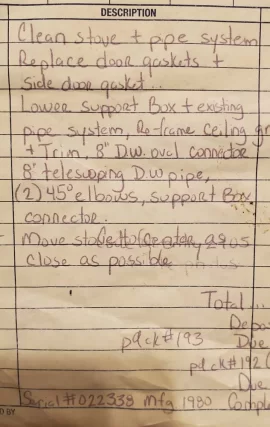 DESCRIPTION
Clean stove + pipe system
Replace door gaskets +
side door gasket...
Lower support Box + existing
pipe system, Re-frame Ceiling
+ Trim, 8" D.W. oval connector
8" telescoping D.W pipe,
(2) 45° elbows, support Box
connector.
Move stove to as
close as possible
Total...
Depo
pd ck#193 Due
pd ck#192
Due
Serial # 022338 mfg 1980 Comple
D BY